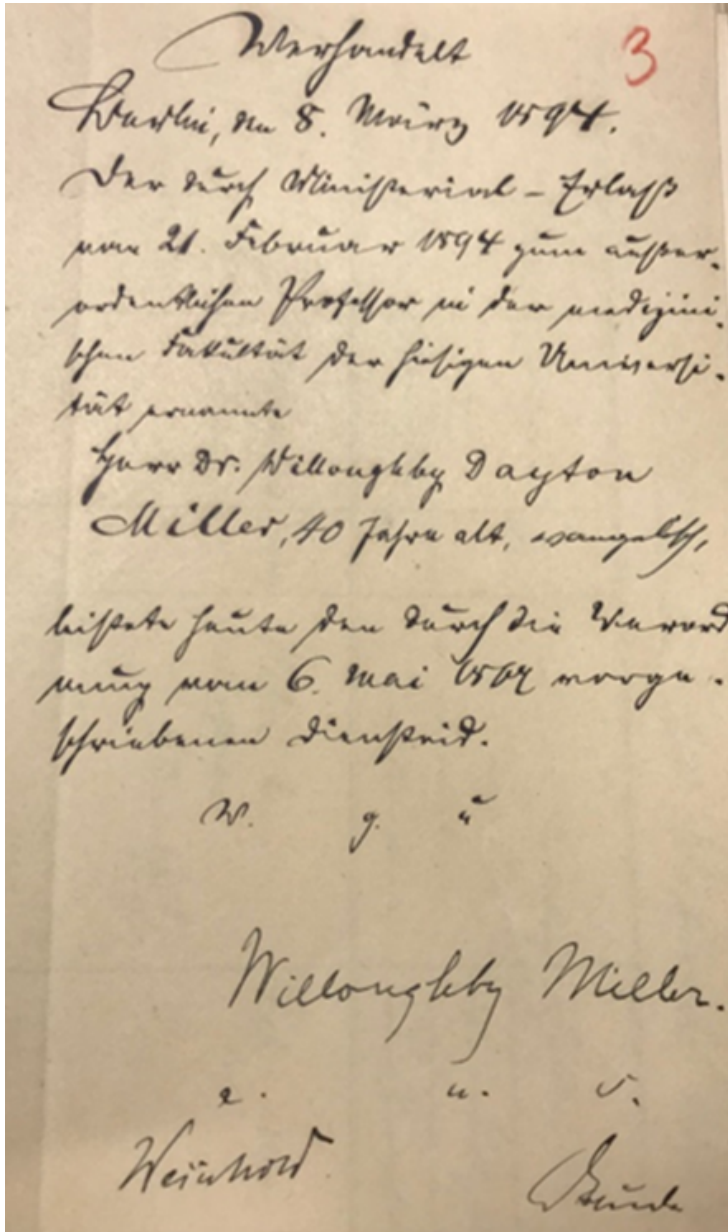 Verhandelt
3
Berlin, den 8. März 1894.
Der durch Ministerial-Erlaß
vom 21. Februar 1894 zum außer-
ordentlichen Professor in der medizini-
schen Fakultät der hiesigen Universi-
tät ernannte
Herr Dr. Willoughby Dayton
Miller, 40 Jahre alt, evangelisch,
leistete heute den durch die Verord
nung vom 6. Mai 1867 vorge-
schriebenen Diensteid.
V. g. u
Willoughby Miller.
a. u. s.
Weinhold